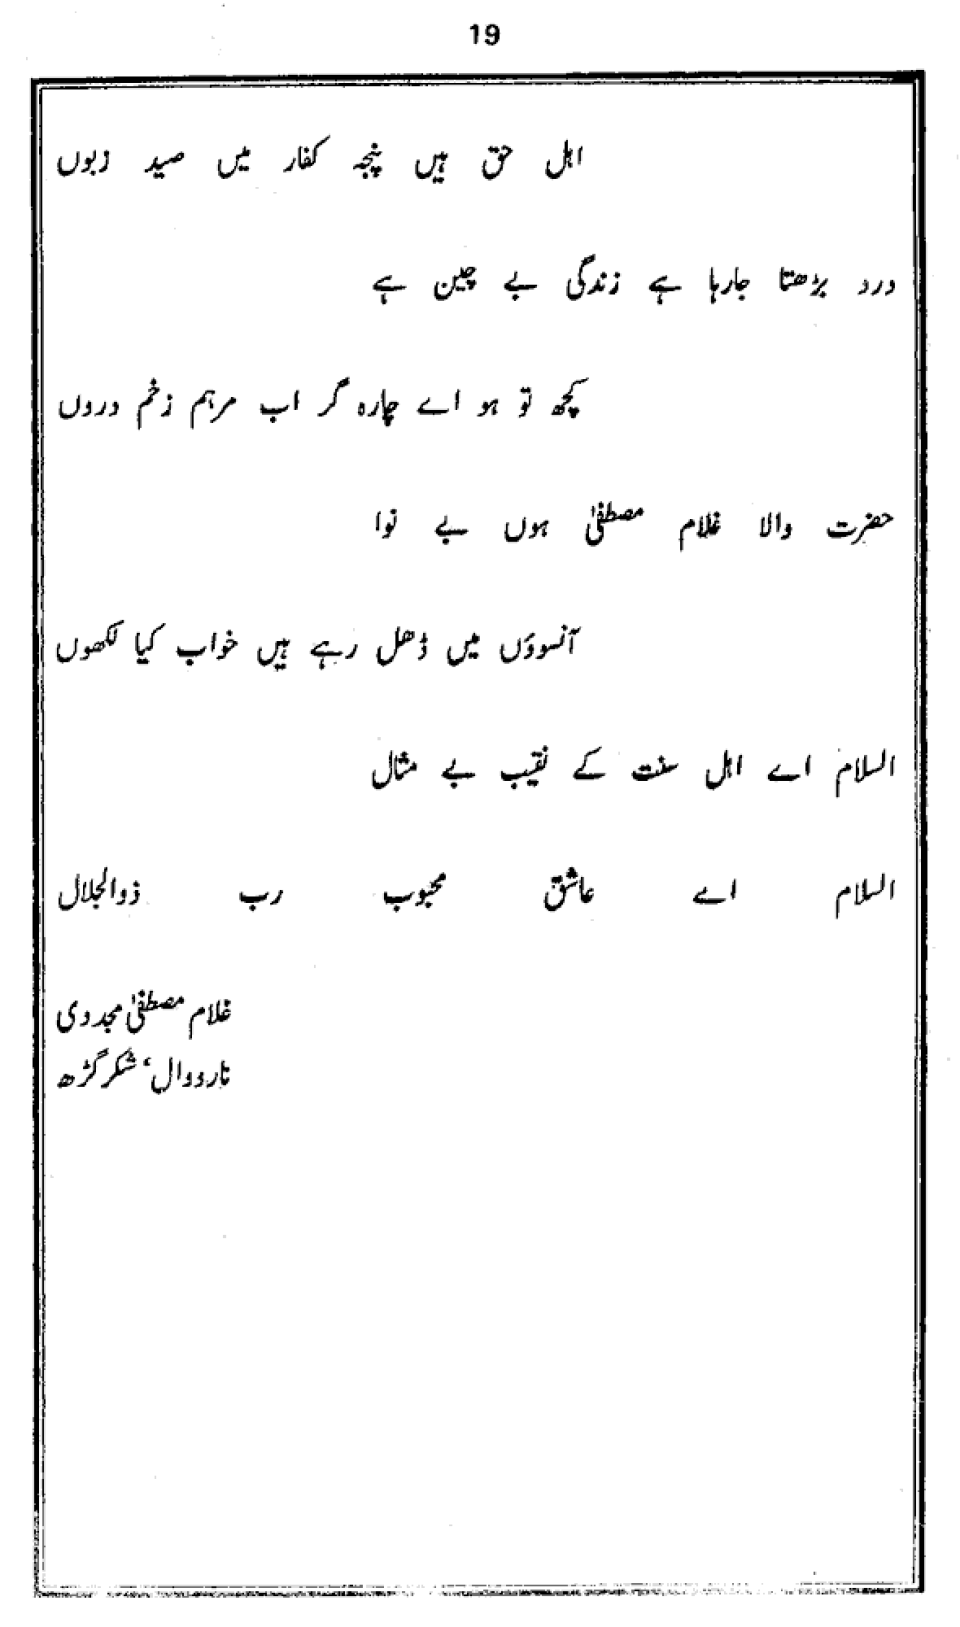 19
اہل حق ہیں پنجہ کفار میں صید زبوں
درد بڑھتا جارہا ہے زندگی بے چین ہے
کچھ تو ہو اے چارہ گر اب مرہم زخم دروں
حضرت والا غلام مصطفیٰ ہوں بے نوا
آنسوؤں میں ڈھل رہے ہیں خواب کیا لکھوں
السلام اے اہل سنت کے نقیب بے مثال
السلام اے عاشق محبوب رب ذوالجلال
غلام مصطفیٰ مجددی
نارووال، شکرگڑھ